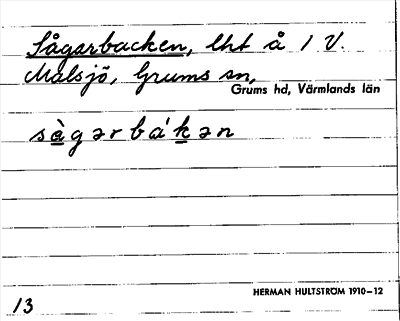 Sågarbacken, lht å 1 V.
Malsjö, Grums sn,
Grums hd, Värmlands län
sàgərbákən
HERMAN HULTSTRÖM 1910–12
13